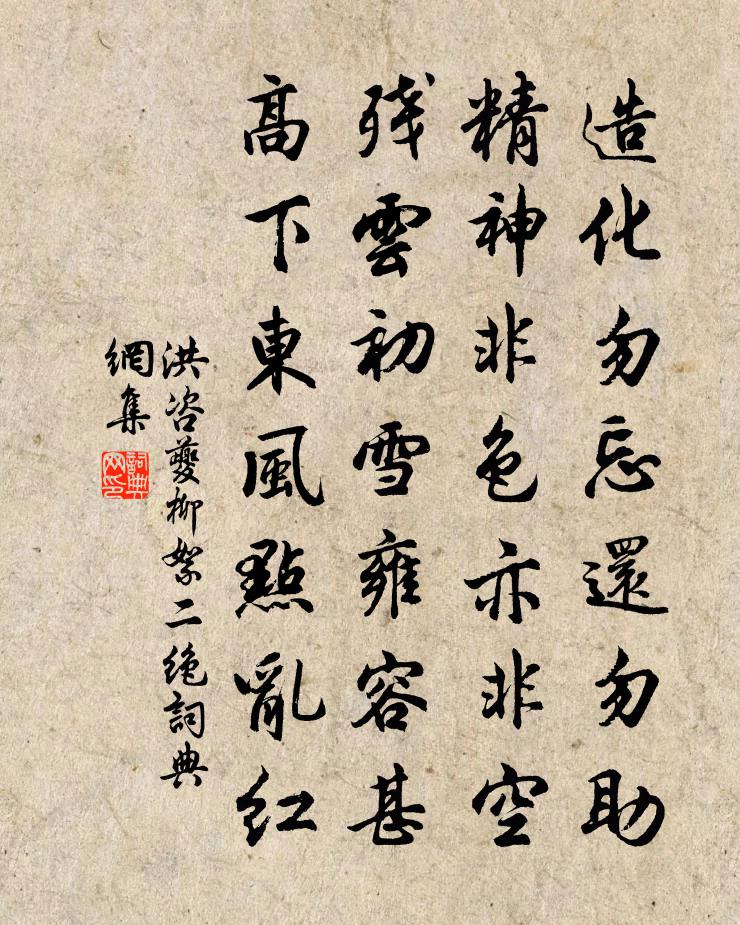 造化勿忘還勿助
精神非色亦非空
残雲初雪雍容甚
高下東風點亂红
洪咨夔柳絮二绝詞典
網集
詞典
网印